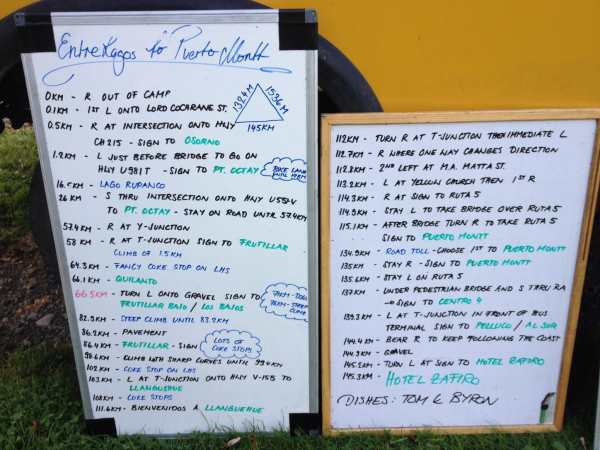 Entre Lagos to Puerto Montt
1324M
1536M
145KM
0KM - R OUT OF CAMP
0.1KM - 1ST L ONTO LORD COCHRANE ST.
0.5KM - R AT INTERSECTION ONTO HWY
CH 215 - SIGN TO OSORNO
1.2KM - L JUST BEFORE BRIDGE TO GO ON
HWY U981T - SIGN TO PT. OCTAY
BIKE LANE
LAGO RUPANCO
26KM - S THRU INTERSECTION ONTO HWY U55-V
TO PT. OCTAY - STAY ON ROAD UNTIL 57.4KM
57.4KM - R AT Y-JUNCTION
58 KM - R AT T-JUNCTION SIGN TO FRUTILLAR
CLIMB OF 1.5KM
64.3KM - FANCY COKE STOP ON LHS
66.1KM - QUILANTO
66.5KM - TURN L ONTO GRAVEL SIGN TO
FRUTILLAR BAJO / LOS BAJOS
82.9KM - STEEP CLIMB UNTIL 83.2KM
86.2KM - PAVEMENT
86.4KM - FRUTILLAR - SIGN
LOTS OF
COKE STOPS
98.6KM - CLIMB WITH SHARP CURVES UNTIL 99.4KM
102KM - COKE STOP ON LHS
103KM - L AT T-JUNCTION ONTO HWY V-155 TO
LLANQUEHUE
108KM - COKE STOPS
111.6KM - BIENVENIDOS A LLANQUEHUE
112KM - TURN R AT T-JUNCTION THEN IMMEDIATE L
112.7KM - R WHERE ONE WAY CHANGES DIRECTION
112.8KM - 2ND LEFT AT M.A. MATTA ST.
113.2KM - L AT YELLOW CHURCH THEN 1ST R
114.3KM - R AT SIGN TO RUTA 5
114.9KM - STAY L TO TAKE BRIDGE OVER RUTA 5
115.1KM - AFTER BRIDGE TURN R TO TAKE RUTA 5
SIGN TO PUERTO MONTT
134.9KM - ROAD TOLL - CHOOSE 1ST TO PUERTO MONTT
135KM - STAY R - SIGN TO PUERTO MONTT
135.6KM - STAY L ON RUTA 5
137KM - UNDER PEDESTRIAN BRIDGE AND S THRU RA
→ SIGN TO CENTRO 4
139.3KM - L AT T-JUNCTION IN FRONT OF BUS
TERMINAL SIGN TO PELLUCO / AL SUR
144.4KM - BEAR R TO KEEP FOLLOWING THE COAST
144.9KM - GRAVEL
145.2KM - TURN L AT SIGN TO HOTEL ZAFIRO
145.3KM - HOTEL ZAFIRO
DISHES: TOM & BYRON